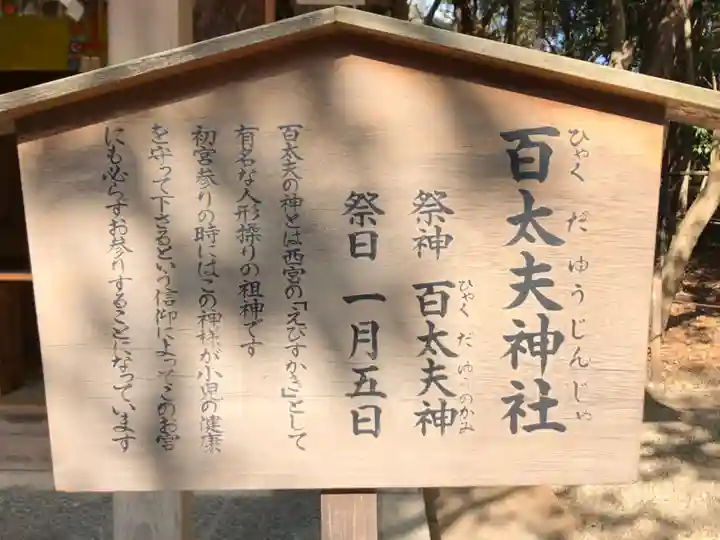 百太夫神社
ひゃくだゆうじんじゃ
祭神 百太夫神
ひゃくだゆうのかみ
祭日 一月五日
百太夫の神とは西宮の「えびすかき」として
有名な人形操りの祖神です
初宮参りの時にはこの神様が小児の健康
を守って下さるという信仰によってこのお宮
にも必らずお参りすることになっています